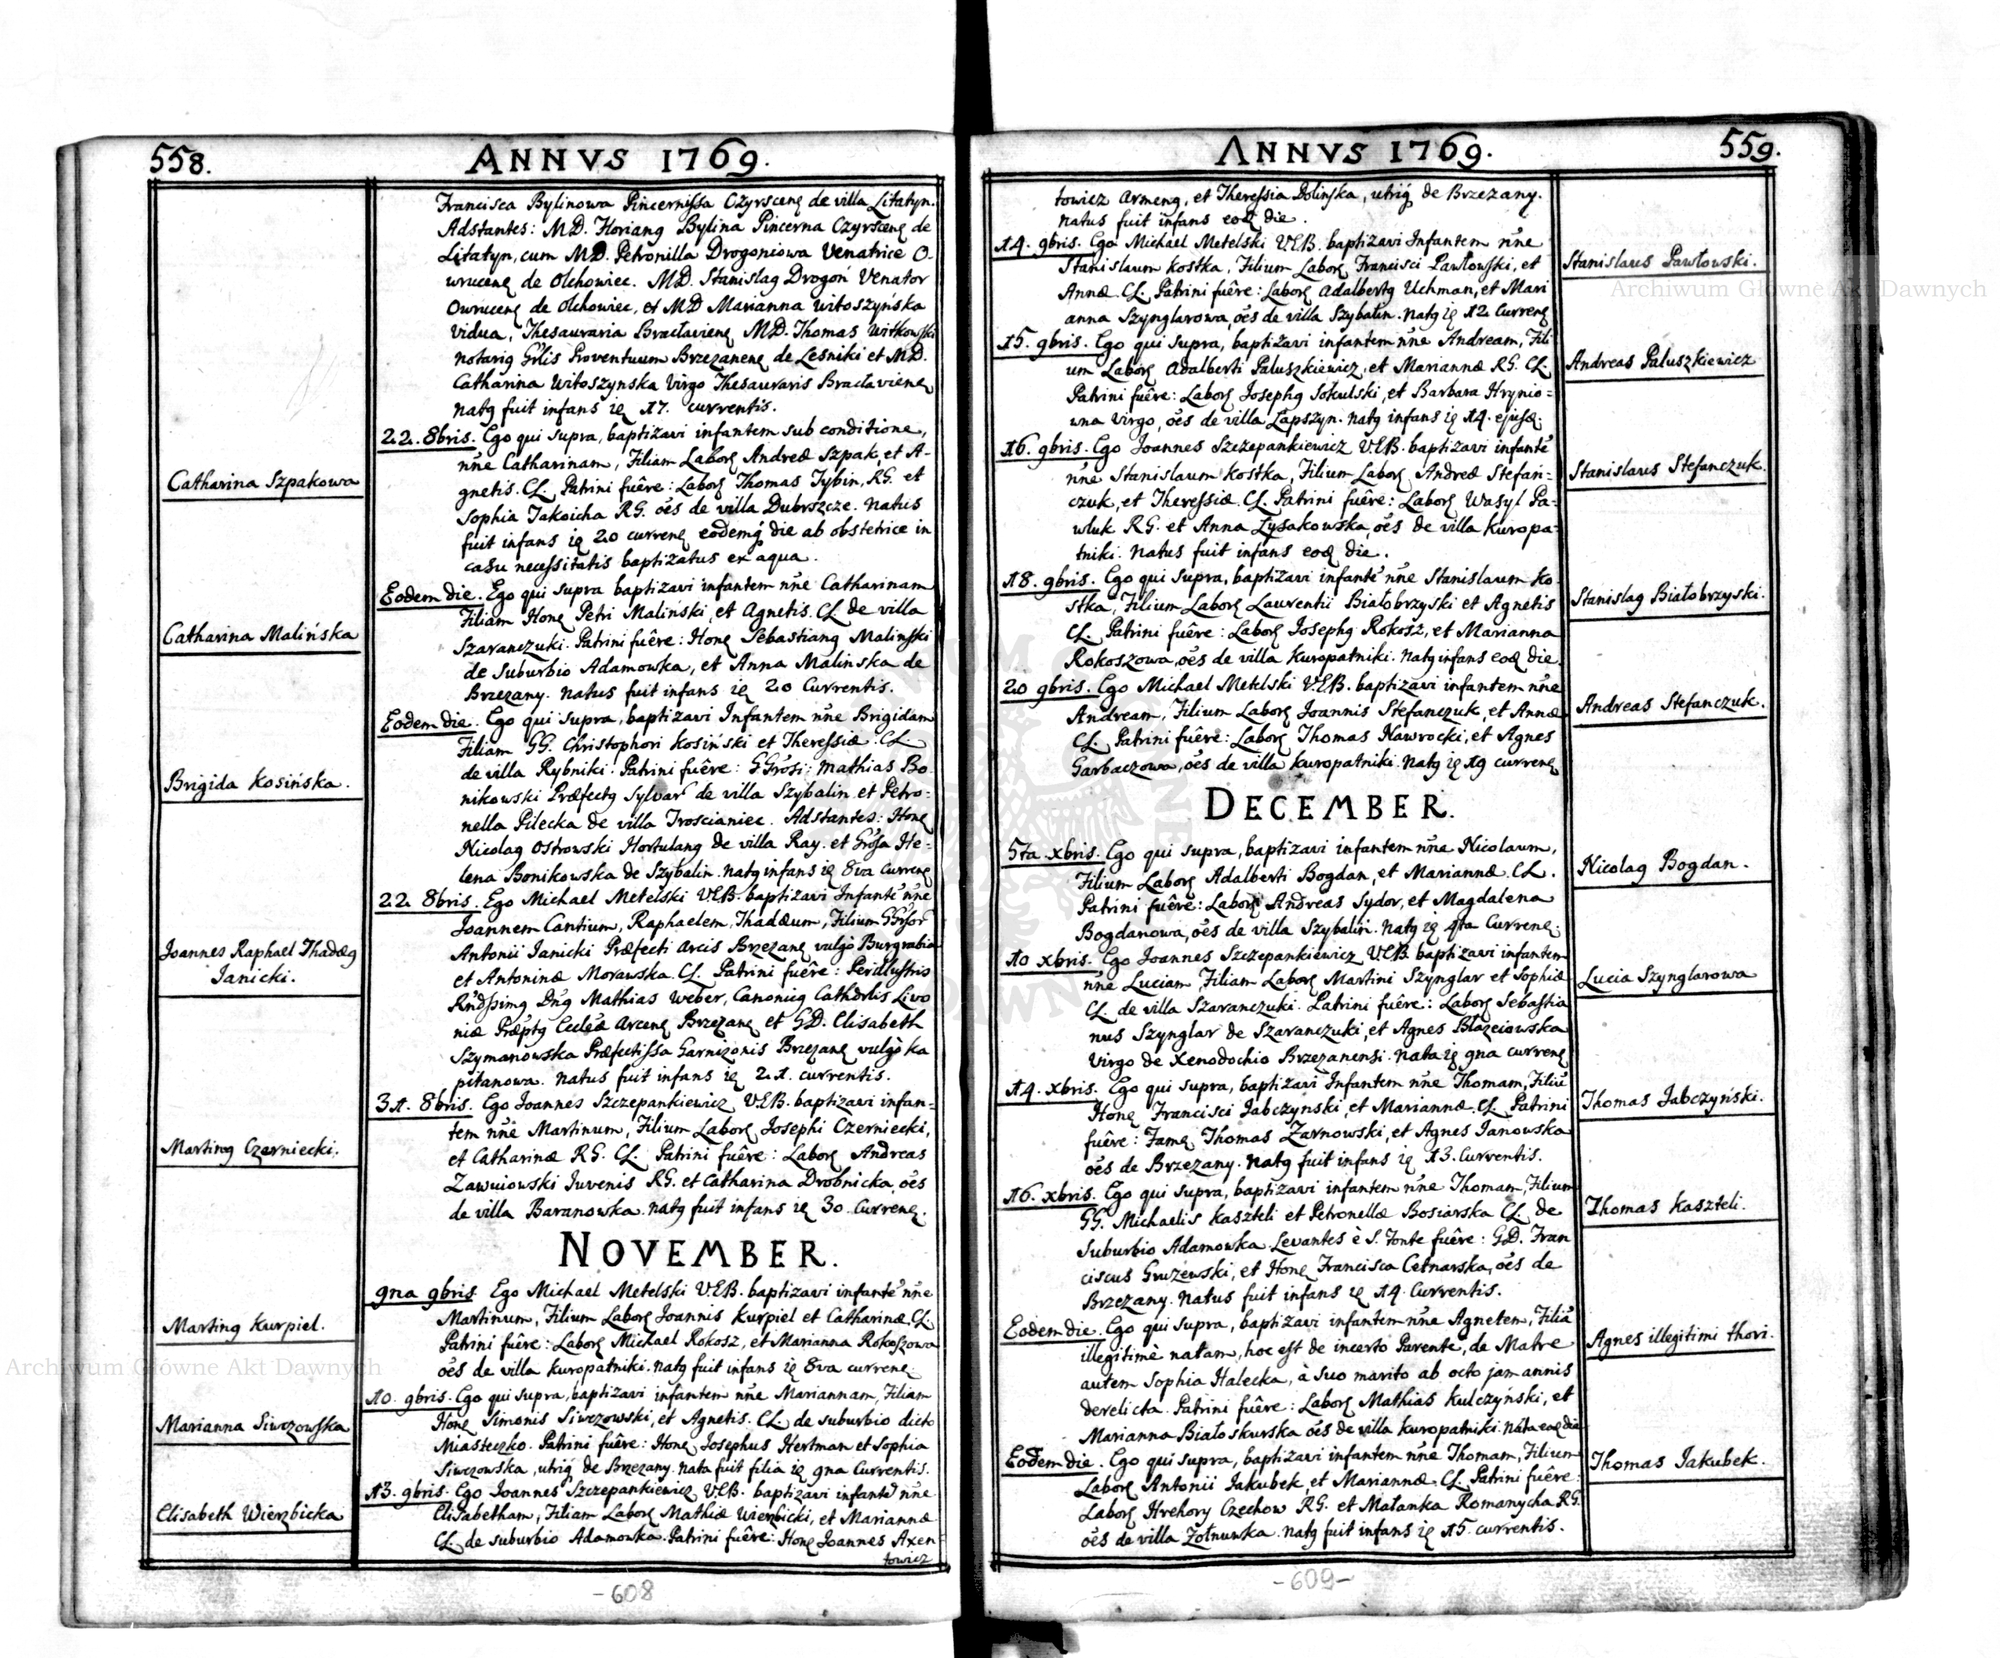 558.
ANNVS 1769.
Francisca Bylinowa Pincernissa Czyrscenę de villa Litatyn.
Adstantes: MD. Florianq Bylina Pincerna Czyrscenę de
Litatyn, cum MD. Petronilla Drogoniowa Venatrice O-
wrucenę de Olchowiec. MD. Stanislaq Drogoń Venator
Owrucenę de Olchowiec, et MD Marianna Witoszyńska
Vidua, Thesauraria Bracłavienę MD. Thomas Witkowski
Notariq Grlis Proventuum Brzezanenę de Leśniki et MD.
Catharina Witoszynska Virgo Thesauraris Bracłavienę
natq fuit infans ię 17. currentis.
Catharina Szpakowa
22. 8bris. Ego qui supra, baptizavi infantem sub conditione,
nne Catharinam, Filiam Laborę Andreæ Szpak, et A-
gnetis. CL. Patrini fuêre: Laborę Thomas Tybin, RG. et
Sophia Jakoicha RG. oẽs de villa Dubrszcze. Natus
fuit infans ię 20 currenę eodemq́ die ab obstetrice in
casu necessitatis baptizatus ex aqua.
Catharina Malińska
Eodem die. Ego qui supra baptizavi infantem nne Catharinam
Filiam Honę Petri Maliński, et Agnetis. CL de villa
Szaranczuki. Patrini fuêre: Honę Sebastianq Malinski
de Suburbio Adamowka, et Anna Malinska de
Brzezany. Natus fuit infans ię 20 Currentis.
Brigida Kosińska.
Eodem die. Ego qui supra, baptizavi Infantem nne Brigidam
Filiam GG. Christophori Kosiński et Theressiæ. CL.
de villa Rybniki. Patrini fuêre: GGrosi: Mathias Bo-
nikowski Præfectq Sylvar de villa Szybalin et Petro-
nella Pilecka de villa Troscianiec. Adstantes: Honę
Nicolaq Ostrowski Hortulanq de villa Ray. et Grosa He-
lena Bonikowska de Szybalin. natq infans ię 8va Currenę
Joannes Raphael Thadæq
Janicki.
22 8bris. Ego Michael Metelski VEB. baptizavi Infante nne
Joannem Cantium, Raphaelem, Thadæum, Filium GGrsor
Antonii Janicki Præfecti Arcis Brzezanę vulgò Burgrabia
et Antoninæ Morawska CL. Patrini fuêre: Perillustris
Rndssimq Dnq Mathias Weber, Canonicq Cathdrlis Livo
niæ Præptq Eccleæ Arcenę Brzezanę et GD. Elisabeth
Szymanowska Præfectissa Garnizonis Brzezanę vulgò Ka
pitanowa. Natus fuit infans ię 21. currentis.
Martinq Czerniecki.
31. 8bris. Ego Joannes Szczepankiewicz VEB. baptizavi infan-
tem nne Martinum, Filium Laborę Josephi Czerniecki,
et Catharinæ RG. CL. Patrini fuêre: Laborę Andreas
Zawuiowski Juvenis RG. et Catharina Drobnicka, oẽs
de villa Baranowka. natq fuit infans ię 30. Currenę.
NOVEMBER.
Martinq Kurpiel.
9na 9bris Ego Michael Metelski VEB. baptizavi infante nne
Martinum, Filium Laborę Joannis Kurpiel et Catharinæ. CL
Patrini fuêre: Laborę Michael Rokosz, et Marianna Rokoszowa
oẽs de villa Kuropatniki. natq fuit infans ię 8va currenę.
Marianna Siwczowska
10. 9bris. Ego qui supra, baptizavi infantem nne Mariannam, Filiam
Honę Simonis Siwczowski, et Agnetis. CL. de suburbio dicto
Miasteczko. Patrini fuêre: Honę Josephus Hertman et Sophia
Siwczowska, utriq́ de Brzezany. nata fuit filia ię 9na Currentis.
Elisabeth Wierzbicka
13. 9bris. Ego Joannes Szczepankiewicz VEB. baptizavi infante nne
Elisabetham, Filiam Laborę Mathiæ Wierzbicki, et Mariannæ
CL. de suburbio Adamowka. Patrini fuêre: Honę Joannes Axen
towicz
-608
ANNVS 1769.
559.
towicz Armenq, et Theressia Dolinska, utriq́ de Brzezany.
Natus fuit infans eoę die.
14. 9bris. Ego Michael Metelski VEB. baptizavi Infantem nne
Stanislaum Kostka, Filium Laborę Francisci Pawłowski, et
Annæ. CL. Patrini fuêre: Laborę Adalbertq Uchman, et Mari
anna Szynglarowa, oẽs de villa Szybalin. Natq ię 12 Currenę
Stanislaus Pawłowski.
15. 9bris. Ego qui supra, baptizavi infantem nne Andream, Fili
um Laborę Adalberti Paluszkiewicz, et Mariannæ RG. CL.
Patrini fuêre: Laborę Josephq Sokulski, et Barbara Hrynio-
wna Virgo, oẽs de villa Łapszyn. Natq infans ię 14. ejusę.
Andreas Paluszkiewicz
16. 9bris. Ego Joannes Szczepankiewicz VEB. baptizavi infante
nne Stanislaum Kostka, Filium Laborę Andreæ Stefań-
czuk, et Theressiæ. CL. Patrini fuêre: Laborę Wasyl Pa-
wluk RG. et Anna Łysakowska, oẽs de villa Kuropa-
tniki. Natus fuit infans eoę die.
Stanislaus Stefanczuk.
18. 9bris. Ego qui supra, baptizavi infante nne Stanislaum Ko-
stka, Filium Laborę Laurentii Białobrzyski et Agnetis
CL. Patrini fuêre: Laborę Josephq Rokosz, et Marianna
Rokoszowa, oẽs de villa Kuropatniki. Natq infans eoę die.
Stanislaq Białobrzyski.
20 9bris. Ego Michael Metelski VEB. baptizavi infantem nne
Andream, Filium Laborę Joannis Stefanczuk, et Annæ
CL. Patrini fuêre: Laborę Thomas Nawrocki, et Agnes
Garbaczowa, oẽs de villa Kuropatniki. Natq ię 19 currenę
Andreas Stefanczuk.
DECEMBER.
5ta. xbris. Ego qui supra, baptizavi infantem nne Nicolaum,
Filium Laborę Adalberti Bogdan, et Mariannæ. CL.
Patrini fuêre: Laborę Andreas Sydor, et Magdalena
Bogdanowa, oẽs de villa Szybalin. Natq ię 4ta Currenę.
Nicolaq Bogdan.
10 xbris. Ego Joannes Szczepankiewicz VEB. baptizavi infantem
nne Luciam, Filiam Laborę Martini Szynglar et Sophiæ
CL. de villa Szaranczuki. Patrini fuêre: Laborę Sebastia
nus Szynglar de Szaranczuki, et Agnes Błazeiowska
Virgo de Xenodochio Brzezanensi. Nata ię 9na currenę
Lucia Szynglarowa
14. xbris. Ego qui supra, baptizavi Infantem nne Thomam, Filiu
Honę Francisci Jabczynski et Mariannæ. CL. Patrini
fuêre: Famę Thomas Zarnowski, et Agnes Janowska
oẽs de Brzezany. Natq fuit infans ię 13. Currentis.
Thomas Jabczyński.
16. xbris. Ego qui supra, baptizavi infantem nne Thomam, Filium
GG. Michaelis Kaszteli et Petronellæ Bosiarska CL. de
Suburbio Adamowka. Levantes è S. Fonte fuêre: GD. Fran
ciscus Gruzewski, et Honę Francisca Cetnarska, oẽs de
Brzezany. Natus fuit infans ię 14. Currentis.
Thomas Kaszteli.
Eodem die. Ego qui supra, baptizavi infantem nne Agnetem, Filiã
illegitimè natam, hoc est de incerto Parente, de Matre
autem Sophia Halecka, à suo marito ab octo jam annis
derelicta. Patrini fuêre: Laborę Mathias Kulczyński, et
Marianna Białoskurska oẽs de villa Kuropatniki. Nata eoę die
Agnes illegitimi thori.
Eodem die. Ego qui supra, baptizavi infantem nne Thomam, Filium
Laborę Antonii Jakubek, et Mariannæ. CL. Patrini fuêre:
Laborę Hrehory Czechow RG. et Małanka Romanycha RG.
oẽs de villa Zołnuwka. natq fuit infans ię 15. currentis.
Thomas Jakubek.
-609-
Archiwum Główne Akt Dawnych
Archiwum Główne Akt Dawnych